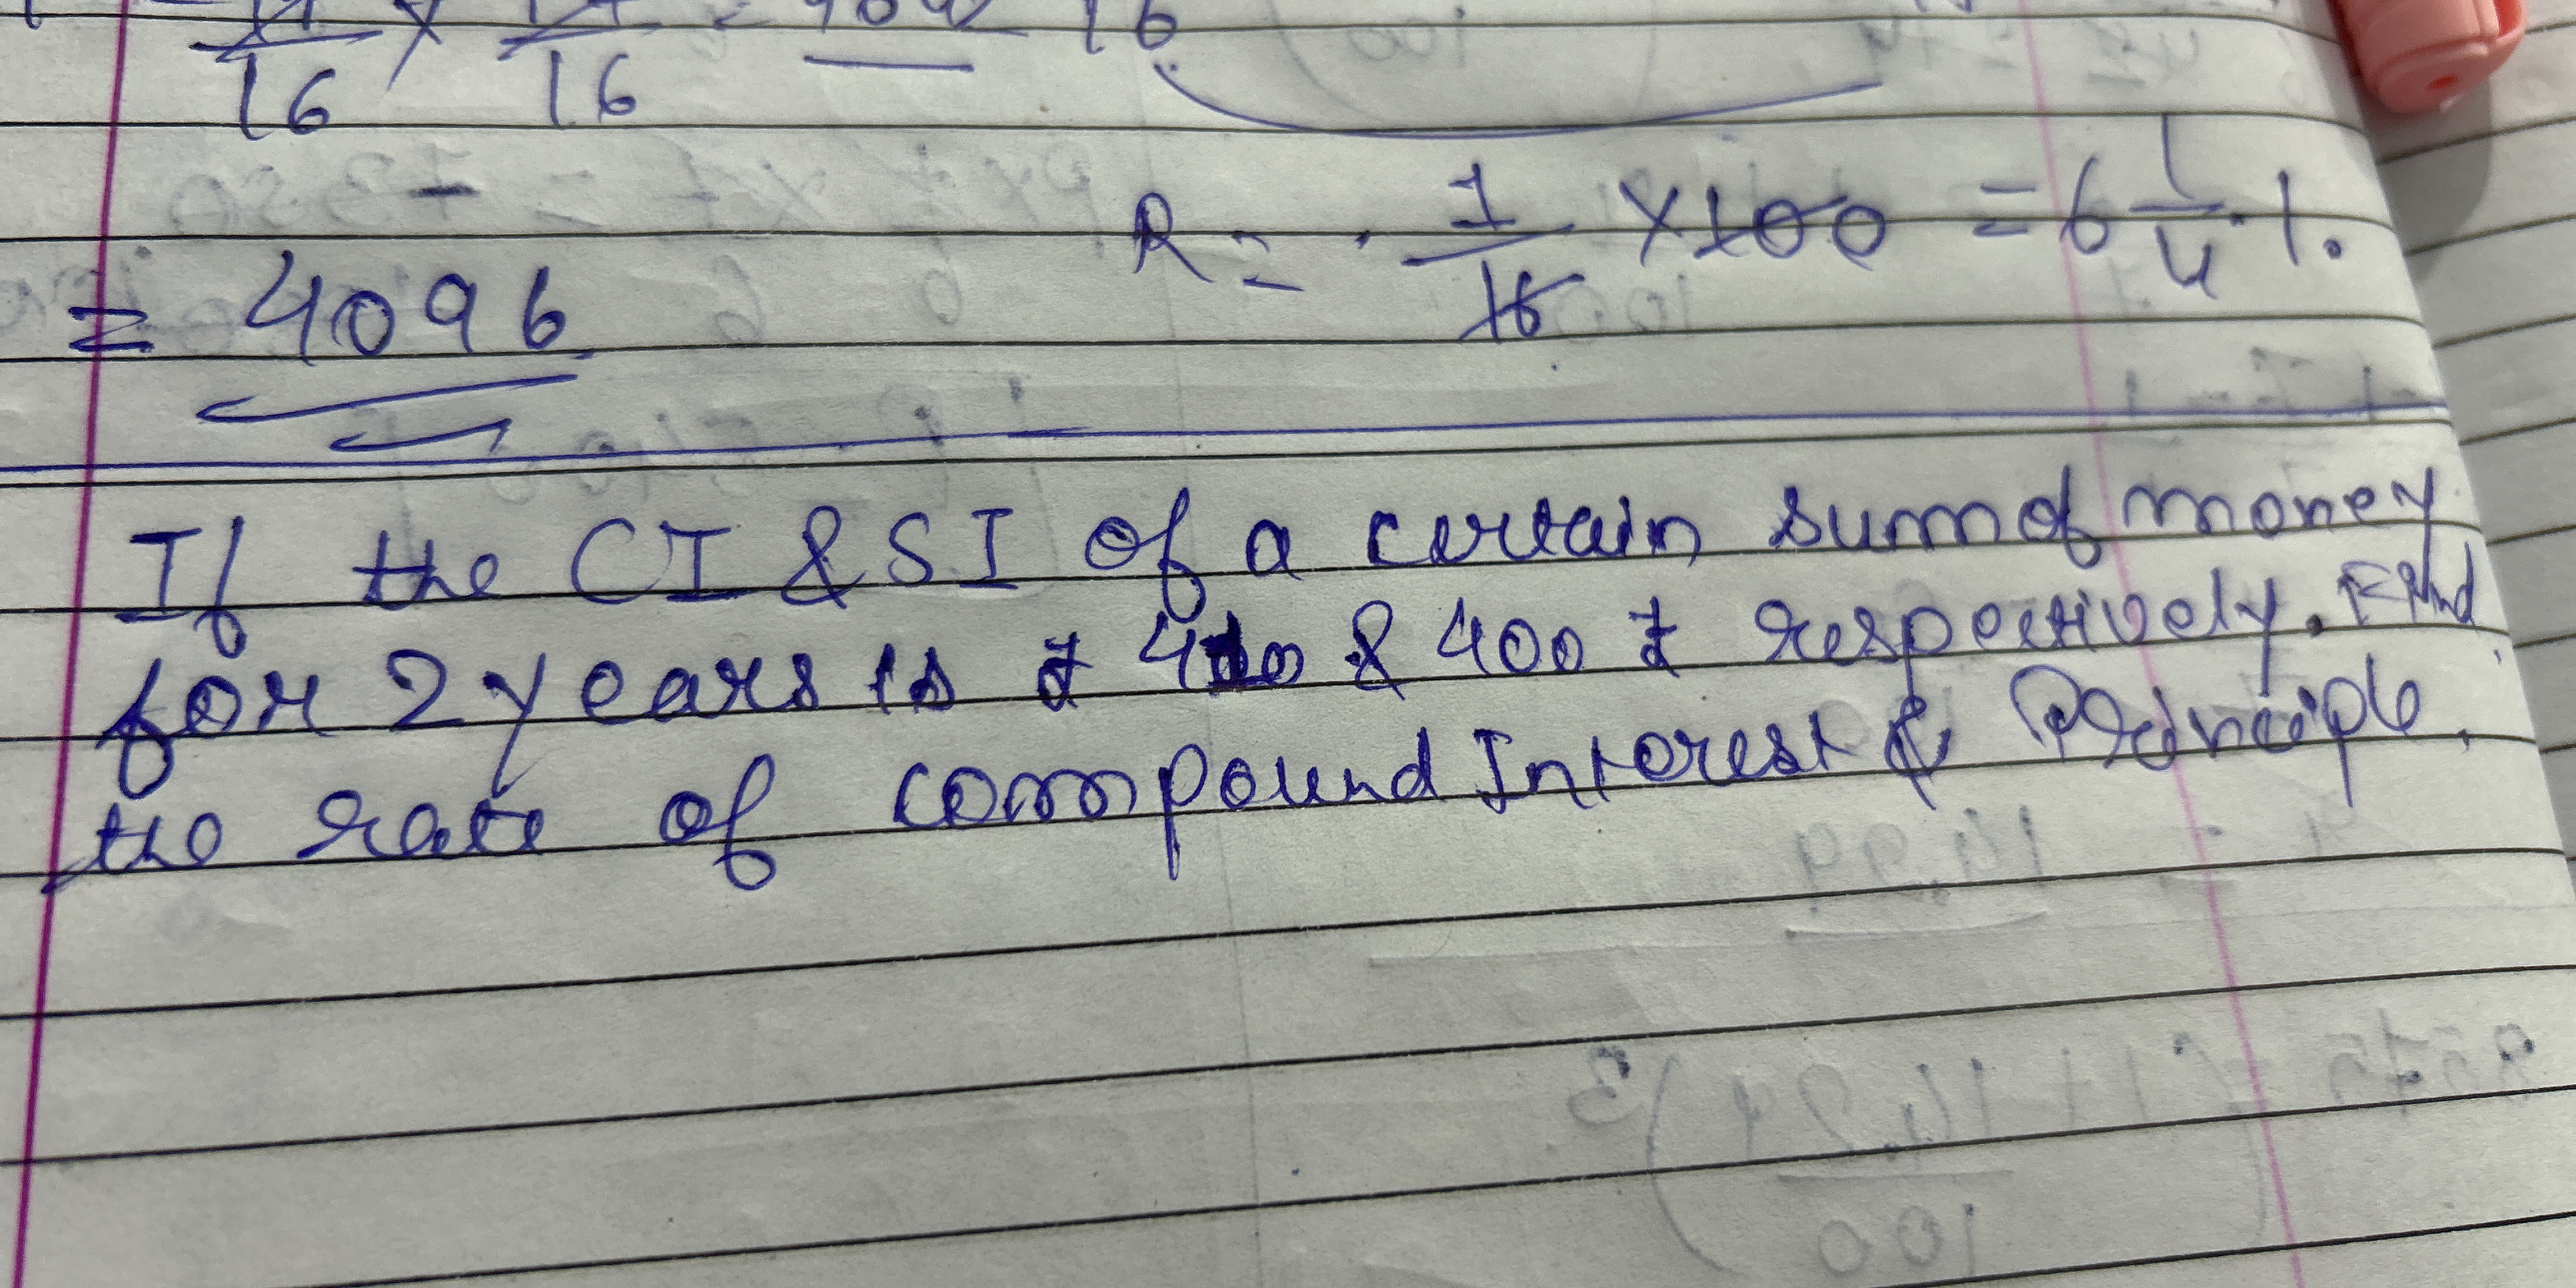 16 × 16 = 16
R = 1/16 × 100 = 6 1/4 %.
= 4096
If the CI & SI of a certain sum of money
for 2 years is ₹ 410 & 400 ₹ respectively. Find
the rate of compound Interest & Principle.